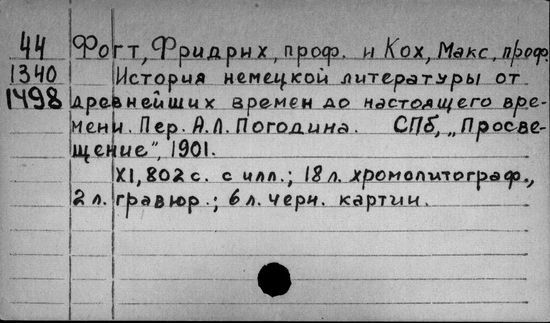 44 Фогт, Фридрих, проф. и Кох, Макс, проф.
1340 История немецкой литературы от
1498 древнейших времен до настоящего вре-
мени. Пер. А.Л. Погодина. СПб, „Просве-
щение", 1901.
XI, 802 с. с илл.; 18 л. хромолитограф.,
2 л. гравюр.; 6 л. черн. картин.